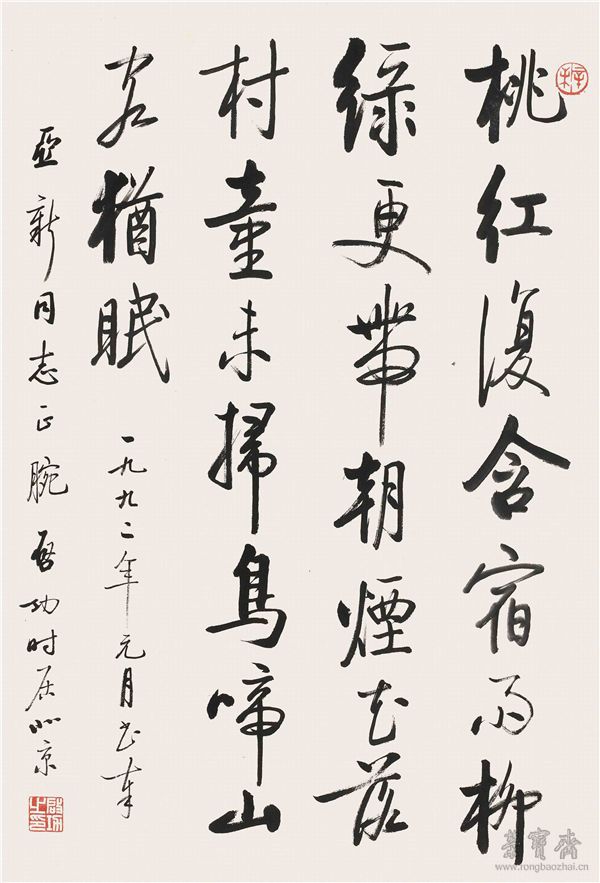 桃紅復含宿雨柳
綠更帶朝煙花落
村童未掃鳥啼山
客猶眠
一九九二年元月书奉
亞新同志正腕 啓功时居北京
榮寶齋
www.rongbaozhai.cn